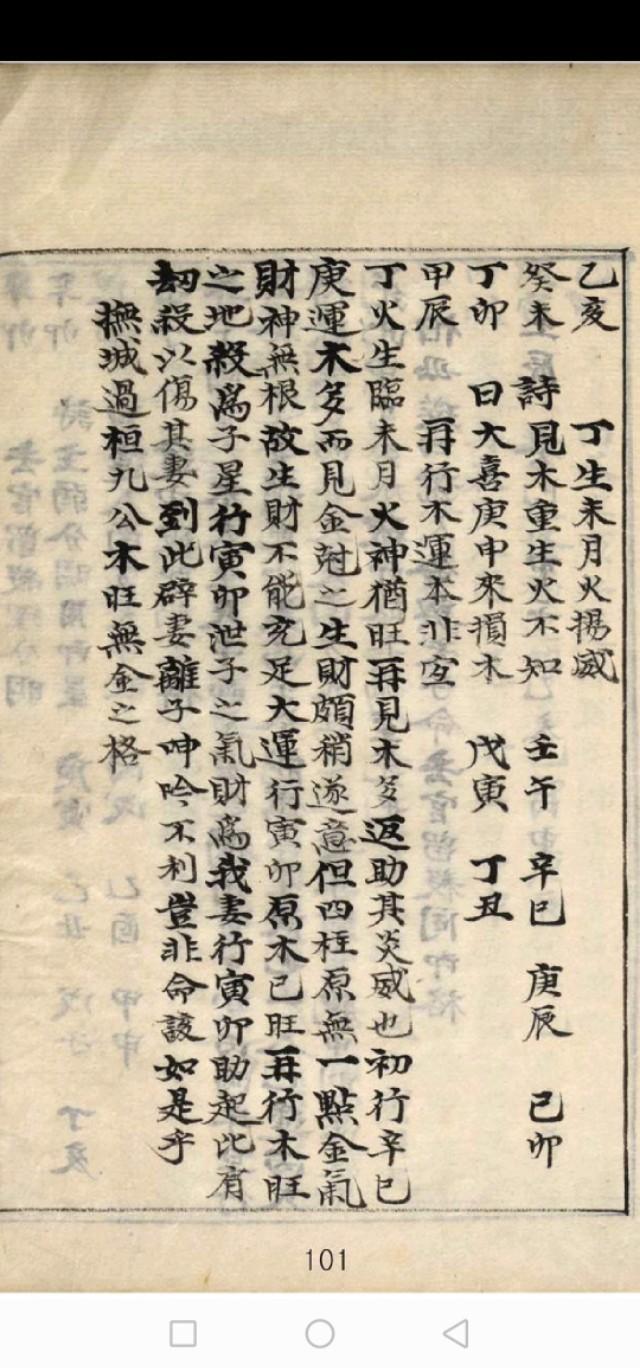 乙亥　丁生未月火揚威
癸未　詩見木重生火不知　壬午　辛巳　庚辰　己卯
丁卯　曰大喜庚申來損木　戊寅　丁丑
甲辰　再行木運本非宜
丁火生臨未月火神猶旺再見木多返助其炎威也初行辛巳
庚運木多而見金尅之生財頗稍遂意但四柱原無一點金氣
財神無根故生財不能充足大運行寅卯原木已旺再行木旺
之地殺爲子星行寅卯泄子之氣財爲我妻行寅卯助起比有
刼殺以傷其妻到此辟妻離子呻吟不利豈非命該如是乎
撫城過桓九公木旺無金之格
101